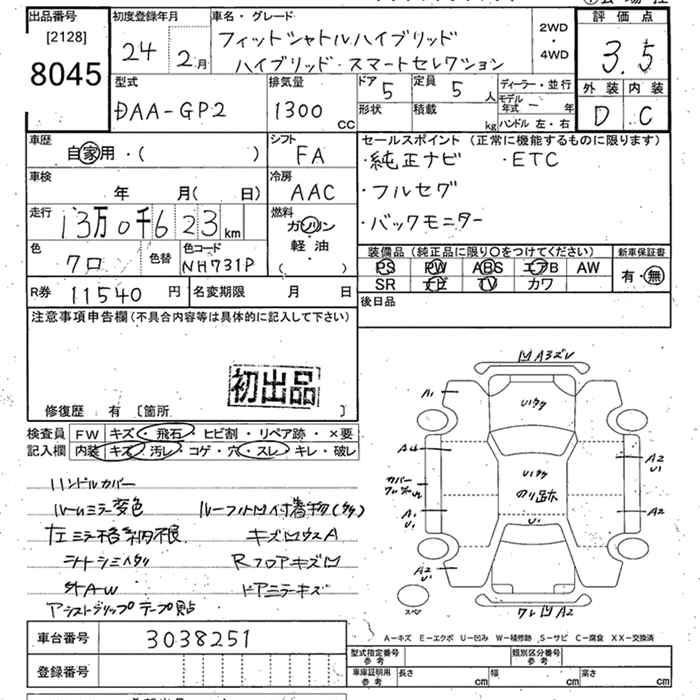 出品番号 [2128] 8045
初度登録年月 24 2月
車名・グレード フィットシャトルハイブリッド
ハイブリッド・スマートセレクション
2WD・4WD
評価点 3.5
外装 D 内装 C
型式 DAA-GP2
排気量 1300 CC
ドア 5 定員 5 人
形状 積載 kg
ディーラー・並行
モデル年式 年
ハンドル 左・右
車歴 自家用・( )
シフト FA
車検 年 月( 日)
冷房 AAC
走行 13万0千623 km
燃料 ガソリン
軽油
( )
色 クロ 色替 色コード NH731P
R券 11540 円 名変期限 月 日
セールスポイント (正常に機能するものに限ります)
・純正ナビ ・ETC
・フルセグ
・バックモニター
装備品 (純正品に限り〇をつけてください) 新車保証書
PS PW ABS エアB AW 有・無
SR ナビ TV カワ
後日品
注意事項申告欄(不具合内容等は具体的に記入して下さい)
初出品
修復歴 有 〔箇所 〕
検査員 FW キズ・飛石・ヒビ割・リペア跡・×要
記入欄 内装 キズ・汚レ・コゲ・穴・スレ・キレ・破レ
ハンドルカバー
ルームミラー変色
左ミラー格納不良
キズ凹ウスA
RフロアキズM
外AW
ドアミラーキズ
アシストグリップテープ貼
車台番号 3038251
登録番号
A1
A2
U1
A2
U1
A1
U1
A2
A2
U1
のり跡
U1
スペ
A2
A-キズ E-エクボ U-凹み W-補修跡 S-サビ C-腐食 XX-交換済
型式指定番号 参考 類別区分番号 参考
車庫証明用 参考 長さ cm 幅 cm 高さ cm